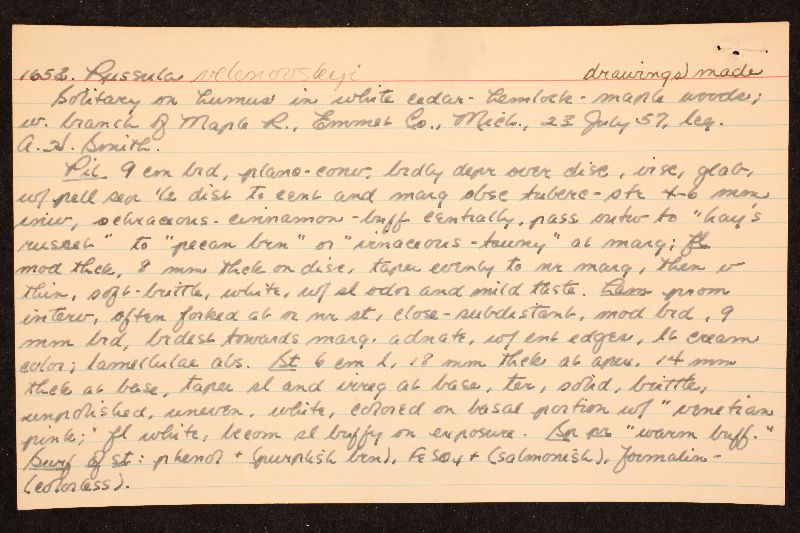 1652. Russula velenovskyi drawings made
Solitary on humus in white cedar-hemlock-maple woods;
w. branch of Maple R., Emmet Co., Mich., 23 July 57, leg.
A. H. Smith.
Pil 9 cm brd, plano-conv, brdly depr over disc, visc, glab,
w/ pell sep ½ dist to cent and marg obsc tuberc-str 4-6 mm
inw, ochraceous-cinnamon-buff centrally, pass outw to "hay's
russet" to "pecan brn" or "vinaceous-tawny" at marg; fl
mod thck, 8 mm thck on disc, taper evenly to nr marg, then v
thin, soft-brittle, white, w/ sl odor and mild taste. Lam prom
interv, often forked at or nr st, close-subdistant, mod brd, 9
mm brd, brdest towards marg. adnate, w/ ent edges, lt cream
color; lamellulae abs. St 6 cm l, 18 mm thck at apex, 14 mm
thck at base, taper sl and irreg at base, ter, solid, brittle,
unpolished, uneven, white, colored on basal portion w/ "venetian
pink;" fl white, becom sl buffy on exposure. Sp pr "warm buff."
Surf of st: phenol + (purplish brn), FeSO4 + (salmonish), formalin -
(colorless).